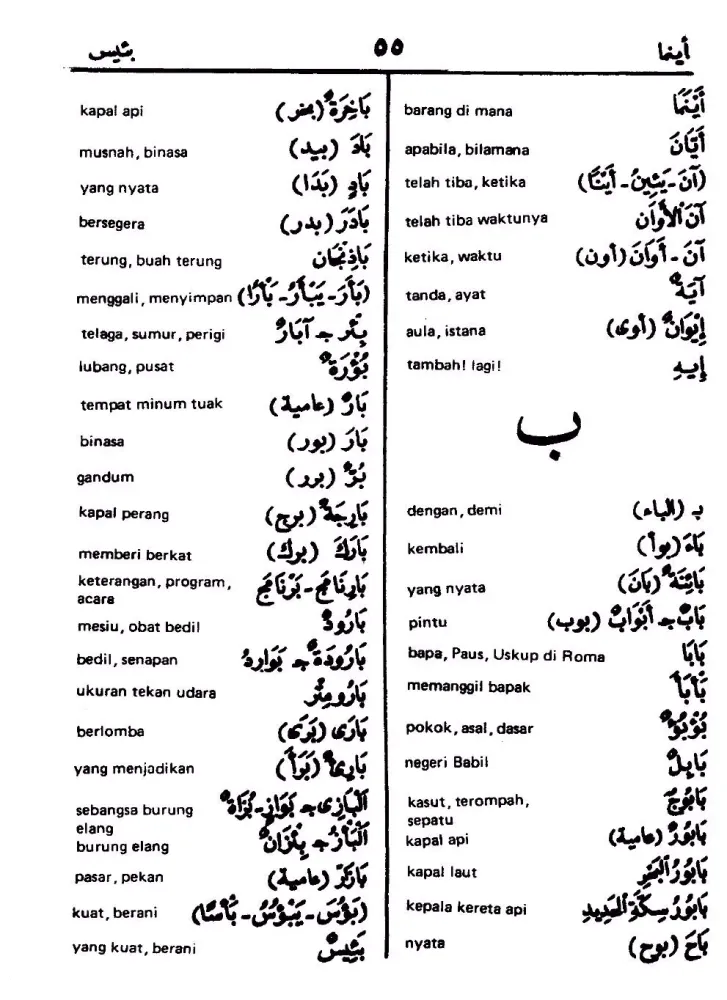 أينما ٥٥ بئيس
أَيْنَمَا barang di mana
أَيَّانَ apabila, bilamana
(آنَ-يَئِينُ-أَيْنًا) telah tiba, ketika
آنَ الأَوَانِ telah tiba waktunya
آنَ - أَوَانَ (أون) ketika, waktu
آيَةٌ tanda, ayat
إِيْوَانٌ (أوى) aula, istana
إِيهِ tambah! lagi!
ب
بـ (الباء) dengan, demi
بَاءَ (بوأ) kembali
بَائِنَةٌ (بَانَ) yang nyata
بَابٌ جـ أَبْوَابٌ (بوب) pintu
بَابَا bapa, Paus, Uskup di Roma
بَأْبَأَ memanggil bapak
بُؤْبُؤٌ pokok, asal, dasar
بَابِلُ negeri Babil
بَابُوجٌ kasut, terompah,
sepatu
بَابُورٌ (عامية) kapal api
بَابُورُ الْبَحْرِ kapal laut
بَابُورُ سِكَّةِ الْحَدِيدِ kepala kereta api
بَاحَ (بوح) nyata
بَاخِرَةٌ (بخر) kapal api
بَادَ (بيد) musnah, binasa
بَادٍ (بَدَا) yang nyata
بَادَرَ (بدر) bersegera
بَاذِنْجَان terung, buah terung
(بَأَرَ-يَبْأَرُ-بَأْرًا) menggali, menyimpan
بِئْرٌ جـ آبَارٌ telaga, sumur, perigi
بُؤْرَةٌ lubang, pusat
بَارٌ (عامية) tempat minum tuak
بَارَ (بور) binasa
بُرٌّ (برر) gandum
بَارِجَةٌ (برج) kapal perang
بَارَكَ (برك) memberi berkat
بَارْنَامَج-بَرْنَامَج keterangan, program,
acara
بَارُودٌ mesiu, obat bedil
بَارُودَةٌ جـ بَوَارِدُ bedil, senapan
بَارُومِتْر ukuran tekan udara
بَارَى (بَرَى) berlomba
بَارِئٌ (بَرَأَ) yang menjadikan
اَلْبَازِى جـ بَوَازٍ-بُزَاةٌ sebangsa burung
elang
اَلْبَأْزُ جـ بِئْزَانٌ burung elang
بَازَرٌ (عامية) pasar, pekan
(بَؤُسَ-يَبْؤُسُ-بَأْسًا) kuat, berani
بَئِيسٌ yang kuat, berani